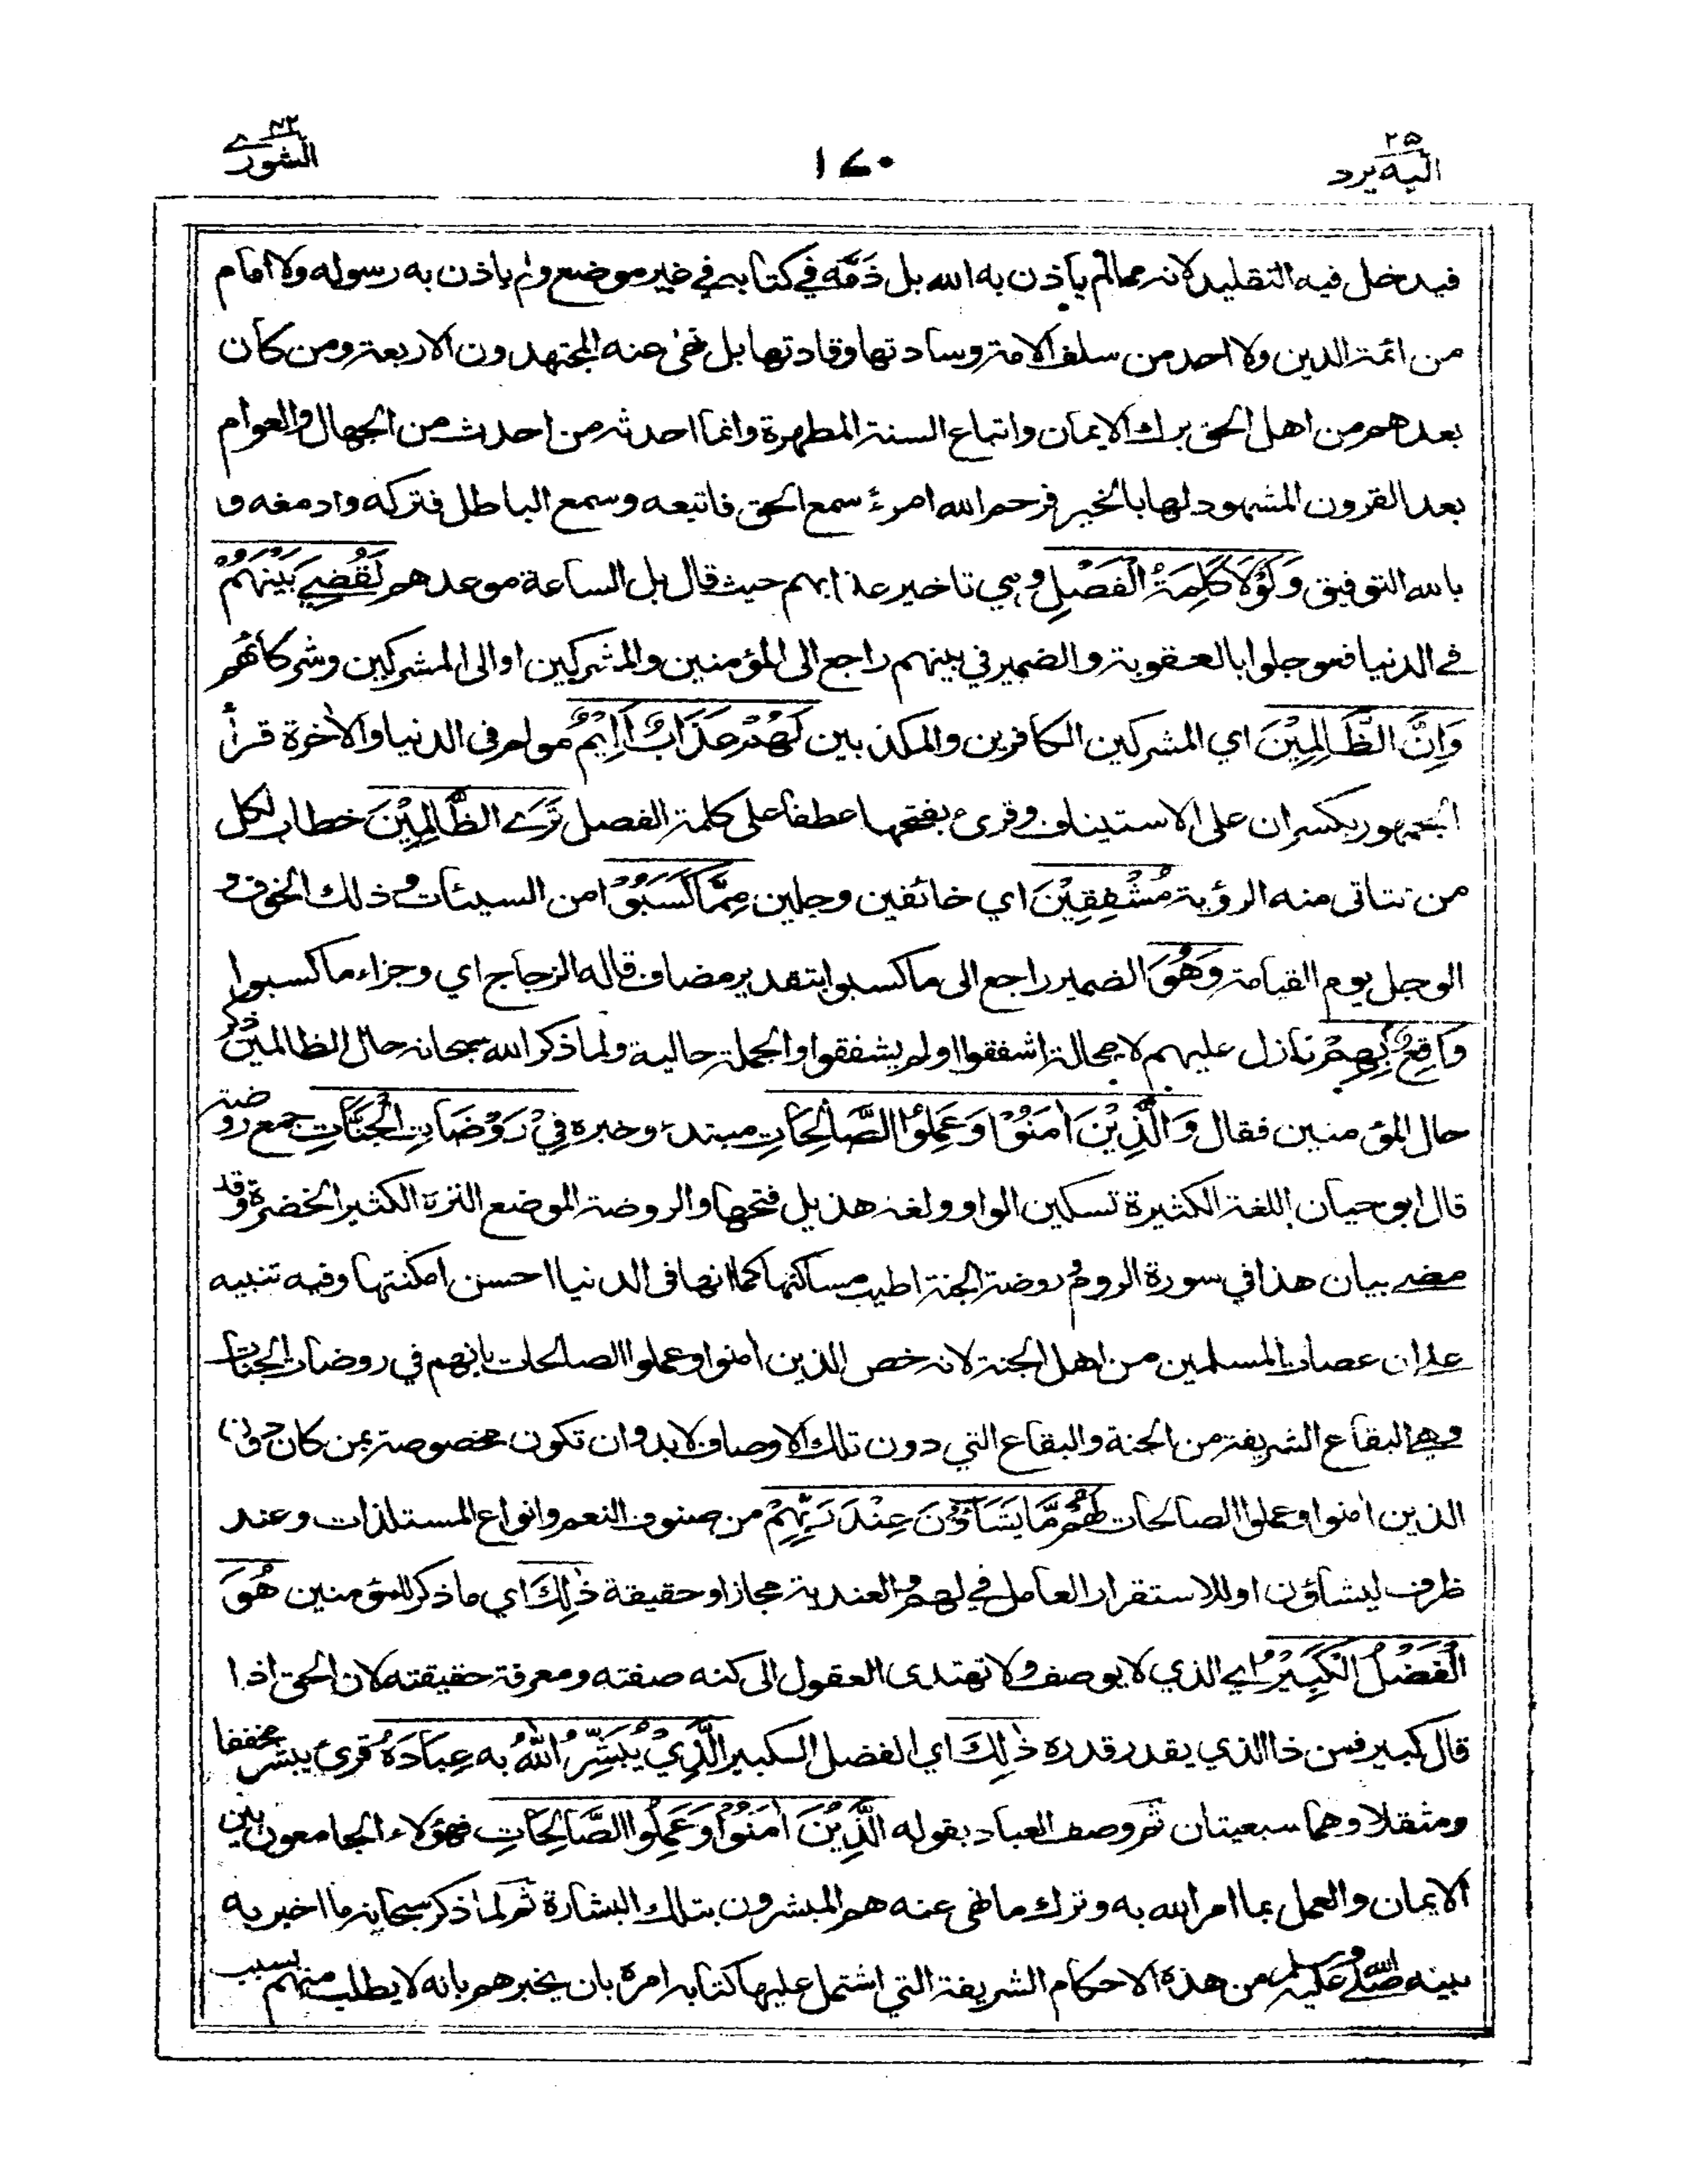 ٢٥
اليه يرد
١٧٠
٤٢
الشورے
فيدخل فيه التقليد لانه مما لم ياذن به الله بل ذَمَّه في كتابه في غير موضع ولم ياذن به رسوله ولا امام
من ائمة الدين ولا احد من سلف الامة وسادتها وقادتها بل نهى عنه المجتهدون الاربعة ومن كان
بعدهم من اهل الحق برك الايمان واتباع السنة المطهرة وانما احدثه من احدث من الجهال والعوام
بعد القرون المشهود لها بالخير فرحم الله امرءً سمع الحق فاتبعه وسمع الباطل فتركه وادمغه و
بالله التوفيق وَلَوْلَا كَلِمَةُ الْفَصْلِ وهي تاخير عذابهم حيث قال بل الساعة موعدهم لَقُضِيَ بَيْنَهُمْ
في الدنيا فعوجلوا بالعقوبة والضمير في بينهم راجع الى المؤمنين والمشركين او الى المشركين وشركائهم
وَإِنَّ الظَّالِمِيْنَ اي المشركين الكافرين والمكذبين لَهُمْ عَذَابٌ أَلِيْمٌ مولم في الدنيا والاٰخرة قرأ
الجمهور بكسر ان على الاستيناف وقرئ بفتحها عطفا على كلمة الفصل تَرَے الظَّالِمِيْنَ خطاب لكل
من تتاتى منه الرؤية مُشْفِقِيْنَ اي خائفين وجلين مِمَّا كَسَبُوْا من السيئات وذلك الخوف و
الوجل يوم القيامة وَهُوَ الضمير راجع الى ما كسبوا بتقدير مضاف قاله الزجاج اي وجزاء ما كسبوا
وَاقِعٌ بِهِمْ نازل عليهم لا محالة اشفقوا اولم يشفقوا والجملة حالية ولما ذكر الله سبحانه حال الظالمين ذكر
حال المؤمنين فقال وَالَّذِيْنَ اٰمَنُوْا وَعَمِلُوا الصَّالِحَاتِ مبتدء وخبره فِيْ رَوْضَاتِ الْجَنَّاتِ جمع روضة
قال ابو حيان اللغة الكثيرة تسكين الواو ولغة هذيل فتحها والروضة الموضع النزه الكثير الخضرة وقد
مضے بيان هذا في سورة الروم وروضة الجنة اطيب مساكنها كما انها في الدنيا احسن امكنتها وفيه تنبيه
علے ان عصاة المسلمين من اهل الجنة لانه خص الذين اٰمنوا وعملوا الصالحات بانهم في روضات الجنات
وهي البقاع الشريفة من الجنة والبقاع التي دون تلك الاوصاف لا بد وان تكون مخصوصة بمن كان دون
الذين اٰمنوا وعملوا الصالحات لَهُمْ مَّا يَشَآؤُنَ عِنْدَ رَبِّهِمْ من صنوف النعم وانواع المستلذات وعند
ظرف ليشاؤن او للاستقرار العامل في لهم والعندية مجاز او حقيقة ذٰلِكَ اي ما ذكر للمؤمنين هُوَ
الْفَضْلُ الْكَبِيْرُ اي الذي لا يوصف ولا تهتدى العقول الى كنه صفته ومعرفة حقيقته لان الحق اذا
قال كبير فمن ذا الذي يقدر قدره ذٰلِكَ اي الفضل الكبير الَّذِيْ يُبَشِّرُ اللّٰهُ بِه عِبَادَهُ قرئ يبشر مخففا
ومثقلا وهما سبعيتان ثم وصف العباد بقوله الَّذِيْنَ اٰمَنُوْا وَعَمِلُوا الصَّالِحَاتِ فهؤلاء الجامعون بين
الايمان والعمل بما امر الله به وترك ما نهى عنه هم المبشرون بتلك البشارة ثم لما ذكر سبحانه ما اخبر به
نبيه صلے الله عليه وسلم من هذه الاحكام الشريفة التي اشتمل عليها كتابه امره بان يخبرهم بانه لا يطلب منهم بسبب